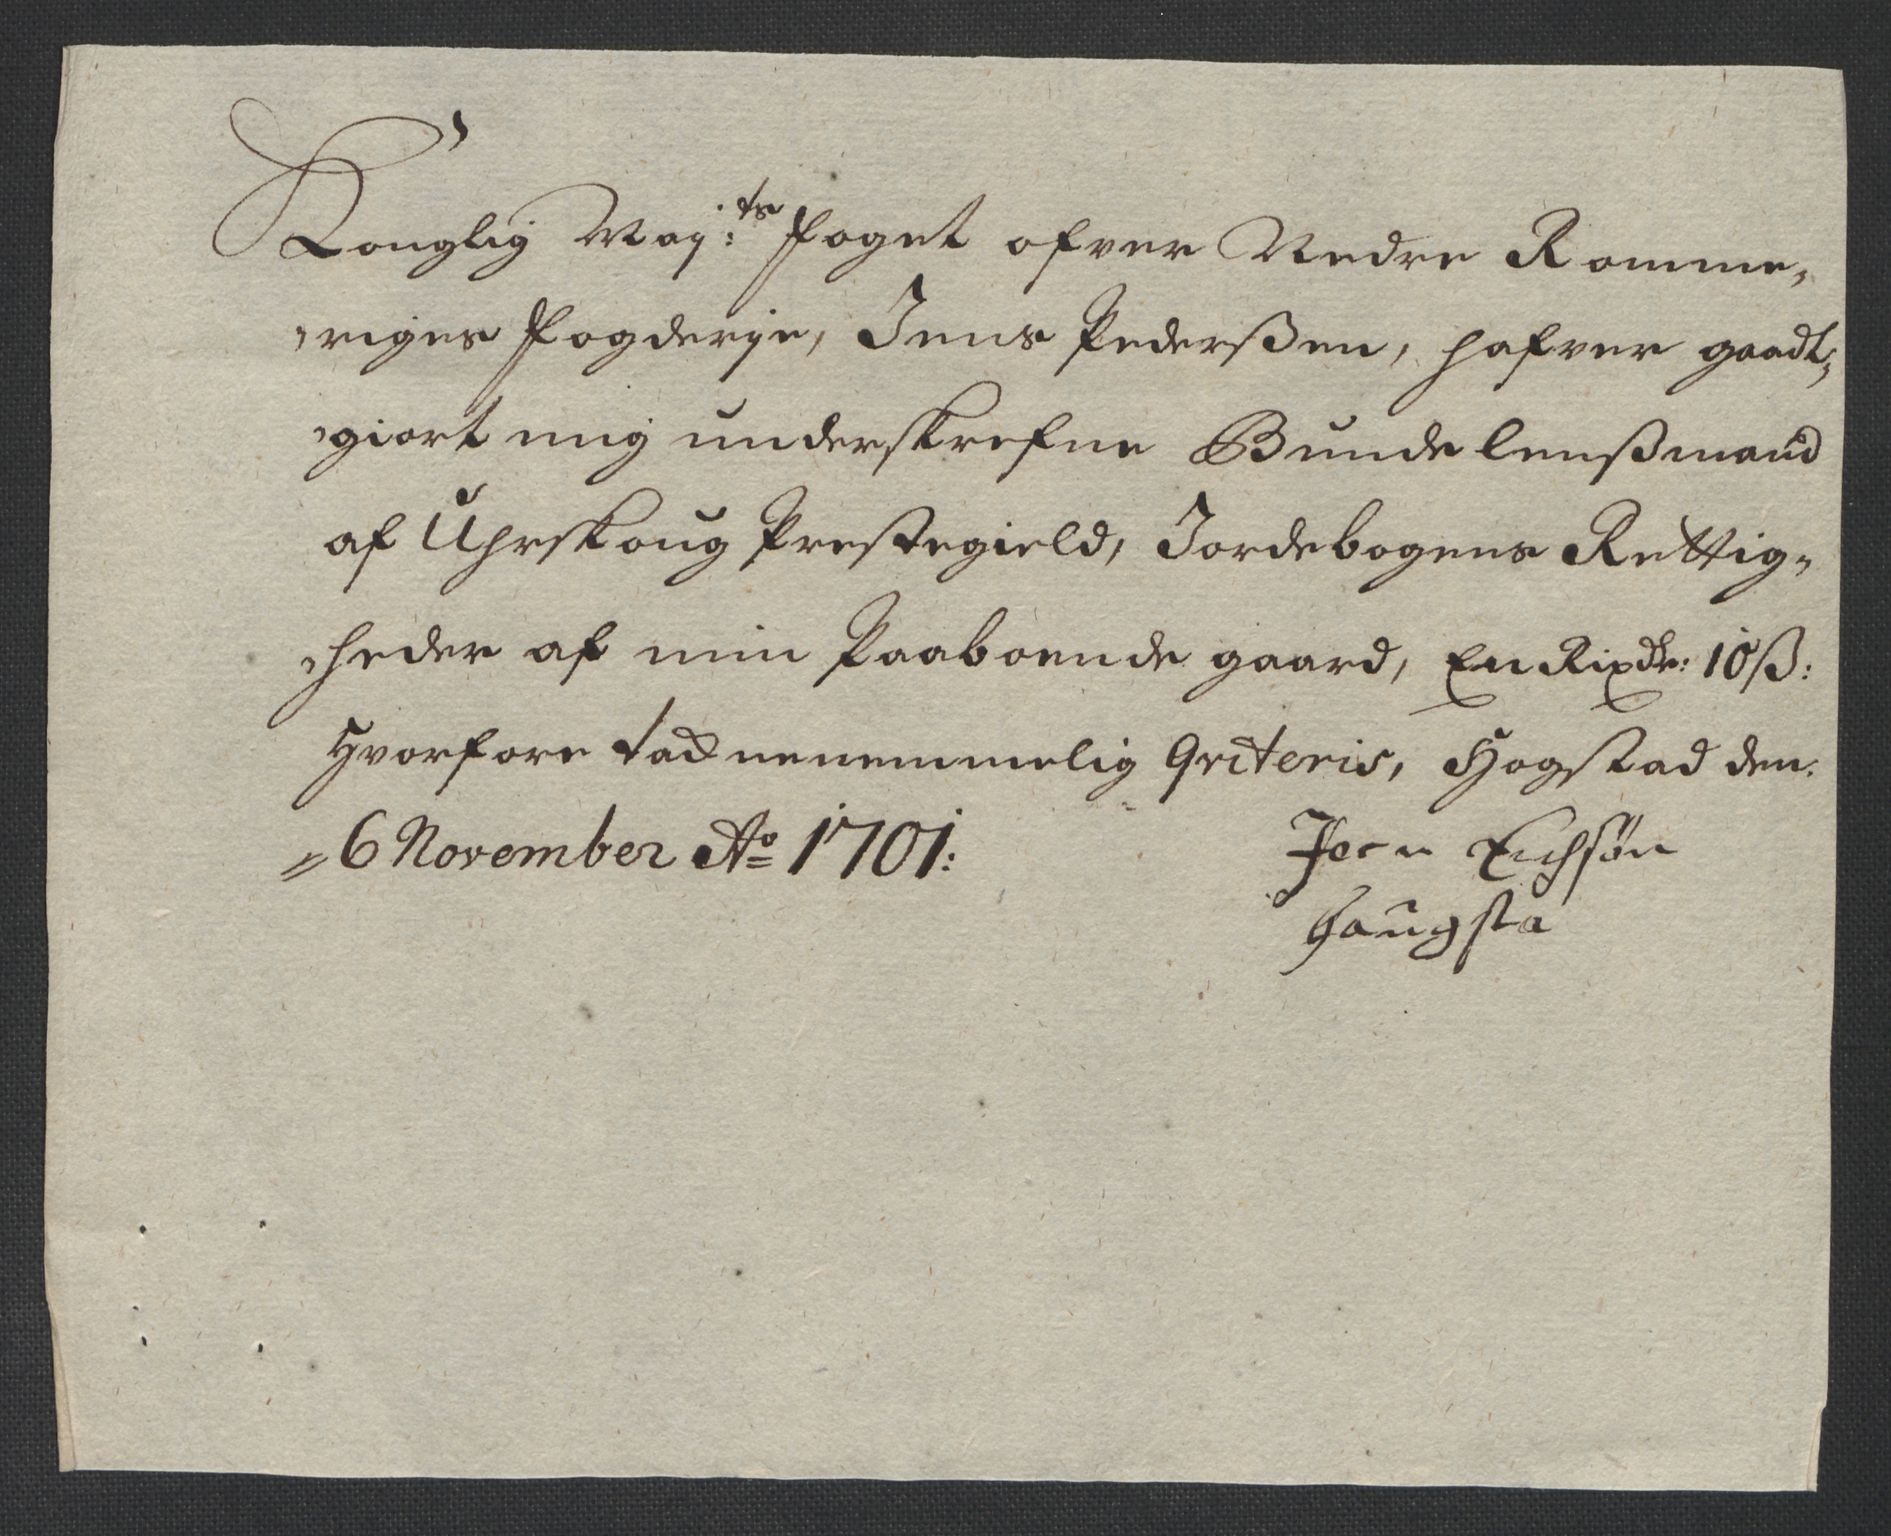 Konglig May:ts foget ofver Nedre Romme,
riges fogderje, Jens Pederßen, hafver gaadt,
giort mig underskrefne Bunde lenßmand
af Uhrskoug Prestegield, Jordebogens Rettig,
heder af min Paaboende gaard, En Rixdr: 10ß:
Hvorfore tacknenemmelig Qviteris, Hogstad den:
6 November Ao 1701:
Haugsta